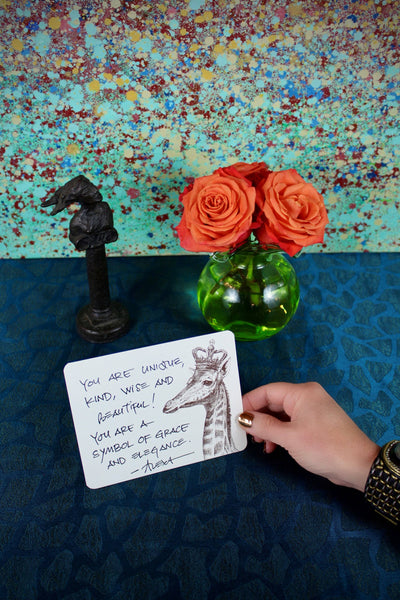 YOU ARE UNIQUE,
KIND, WISE AND
BEAUTIFUL!
YOU ARE A
SYMBOL OF GRACE
AND ELEGANCE.